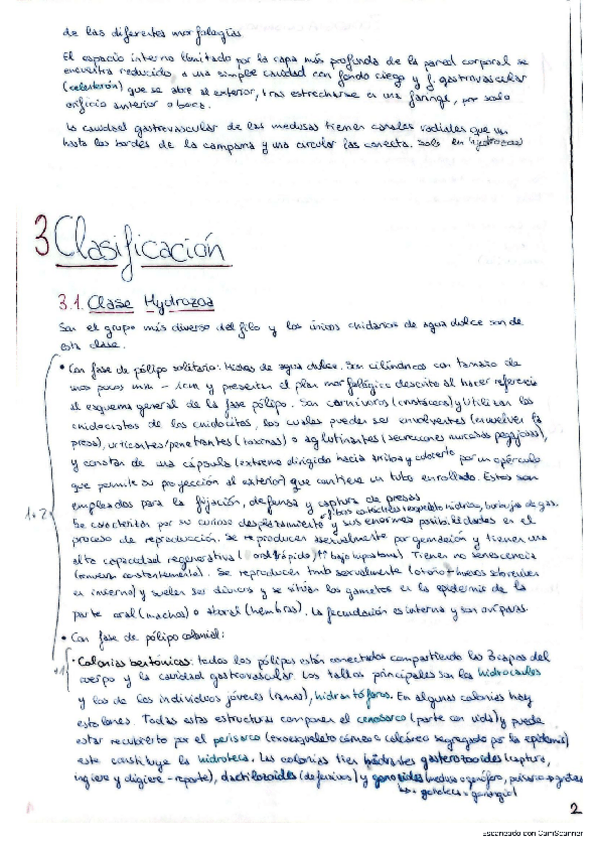 de las diferentes morfologías
El espacio interno limitado por la capa más profunda de la pared corporal se
encuentra reducido a una simple cavidad con fondo ciego y f. gastrovascular
(celenterón) que se abre al exterior, tras estrecharse en una faringe, por solo
orificio anterior o boca.
La cavidad gastrovascular de las medusas tienen canales radiales que van
hasta los bordes de la campana y una circular las conecta. Solo en hydrozoa
3 Clasificación
3.1. Clase Hydrozoa
Son el grupo más diverso del filo y los únicos cnidarios de agua dulce son de
esta clase.
• Con fase de pólipo solitario: Hidras de agua dulce. Son cilíndricas con tamaño de
unos pocos mm - 1cm y presentan el plan morfológico descrito al hacer referencia
al esquema general de la fase pólipo. Son carnívoros (crustáceos) y utilizan los
cnidocistos de los cnidocitos, los cuales pueden ser envolventes (envuelven la
presa), urticantes/penetrantes (toxinas) o aglutinantes (secreciones mucosas pegajosas),
y constan de una cápsula (extremo dirigido hacia arriba y cubierto por un opérculo
que permite su proyección al exterior) que contiene un tubo enrollado. Estos son
empleados para la fijación, defensa y captura de presas
burbuja de gas.
Se caracterizan por su curioso desplazamiento y sus enormes posibilidades en el
proceso de reproducción. Se reproducen asexualmente por gemación y tienen una
alta capacidad regenerativa ( oral (rápido) Tienen no senescencia
(renuevan constantemente). Se reproducen tmb sexualmente (otoño → huevos sobreviven
en invierno) y suelen ser dioicos y se sitúan los gametos en la epidermis de la
parte oral (machos) o aboral (hembras). La fecundación es interna y son ovíparas.
1+2
• Con fase de pólipo colonial:
+1
· Colonias bentónicas: todos los pólipos están conectados compartiendo las 3 capas del
cuerpo y la cavidad gastrovascular. Los tallos principales son los hidrocaules
y los de los individuos jóvenes (ramas), hidrantóforos. En algunas colonias hay
estolones. Todas estas estructuras componen el cenosarco (parte con vida) y puede
estar recubierto por el perisarco (exoesqueleto córneo o calcáreo segregado por la epidermis)
este constituye la hidroteca. Las colonias tien hidrantes gasterozoides (captura,
ingiere y digiere - reporte), dactilozoides (defensivos) y gonozoides (medusa o gonóforo,
↳ gonoteca + gonangio
2
Escaneado con CamScanner